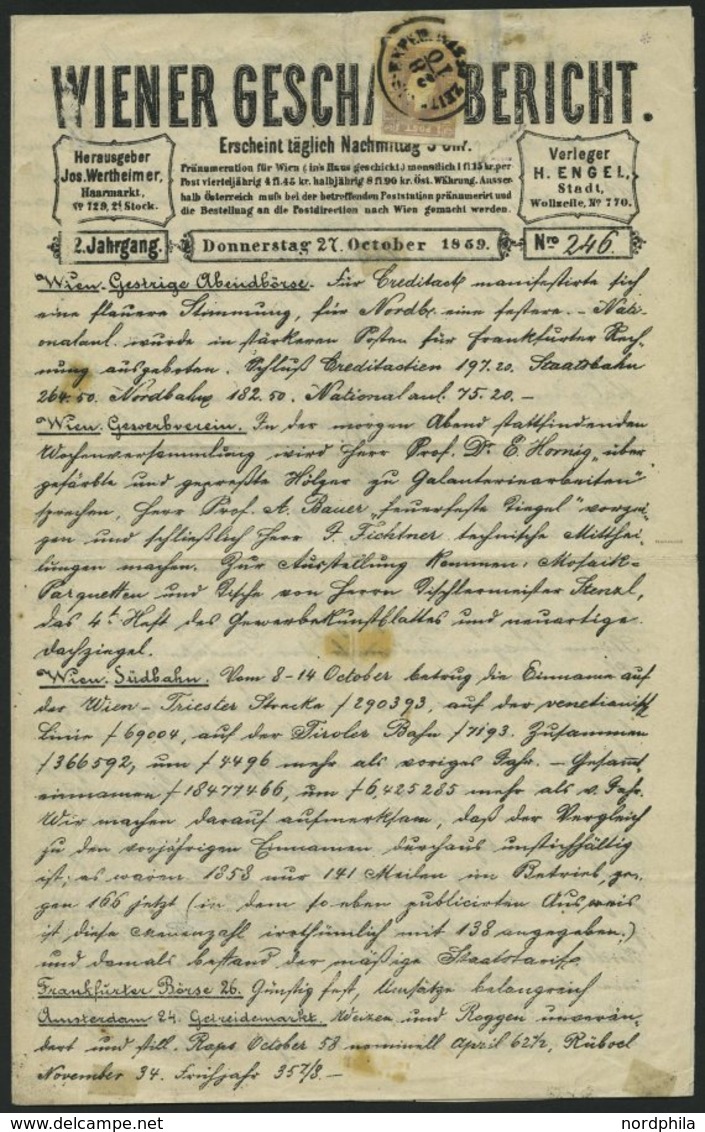 WIENER GESCHÄ BERICHT.
Erscheint täglich Nachmittag 5 Uhr.
Herausgeber
Jos. Wertheimer,
Haarmarkt,
No 729, 2t Stock.
Pränumeration für Wien (in's Haus geschickt) monatlich 1 fl 15 kr, per
Post vierteljährig 4 fl. 45 kr. halbjährig 8 fl 90 kr. Öst. Währung. Ausser-
halb Österreich muſs bei der betreffenden Poststation pränumerirt und
die Bestellung an die Postdirection nach Wien gemacht werden.
Verleger
H. ENGEL,
Stadt,
Wollzeile, No 770.
2. Jahrgang.
Donnerstag 27. October 1859.
Nro 246.
Wien. Gestrige Abendbörse. Für Creditact manifestirte sich
eine flauere Stimmung, für Nordb. eine festere. – Nati-
onalanl. wurde in stärkeren Posten für Frankfurter Rech-
nung ausgeboten. Schluß Creditactien 197.20. Staatsbahn
264.50. Nordbahn 182.50. Nationalanl. 75.20. –
Wien. Gewerbverein. In der morgen Abend stattfindenden
Wochenversammlung wird Herr Prof. Dr. E. Hornig „über
gefärbte und gepreßte Hölzer zu Galanteriearbeiten"
sprechen, Herr Prof. A. Bauer „feuerfeste Tiegel" vorzei-
gen und schließlich Herr J. Fichtner technische Mitthei-
lungen machen. Zur Ausstellung kommen: Mosaik-
Parquetten und Tische von Herrn Tischlermeister Stenzl,
das 4t Heft des Gewerbekunstblattes und neuartige
Dachziegel.
Wien. Südbahn. Vom 8-14 October betrug die Einname auf
der Wien – Triester Strecke f 290393, auf der venetianisch
Linie f 69004, auf der Tiroler Bahn f 7193. Zusammen
f 366592, um f 4496 mehr als voriges Jahr. – Gesammt
einnamen f 18477466, um f 6,425285 mehr als v. Jahr.
Wir machen darauf aufmerksam, daß der Vergleich
zu den vorjährigen Einnamen durchaus unstichhältig
ist; es waren 1858 nur 141 Meilen im Betrieb, ge-
gen 166 jetzt (in dem so eben publicirten Ausweis
ist diese Meilenzahl irrthümlich mit 138 angegeben.)
und damals bestand der mäßige Staatstarif.
Frankfurter Börse 26. Günstig fest, Umsätze belangreich
Amsterdam 24. Getreidemarkt. Weizen und Roggen unverän-
dert und still. Raps October 58 nominell April 62½, Rüboel
November 34. Frühjahr 35⅞. –
nordphila